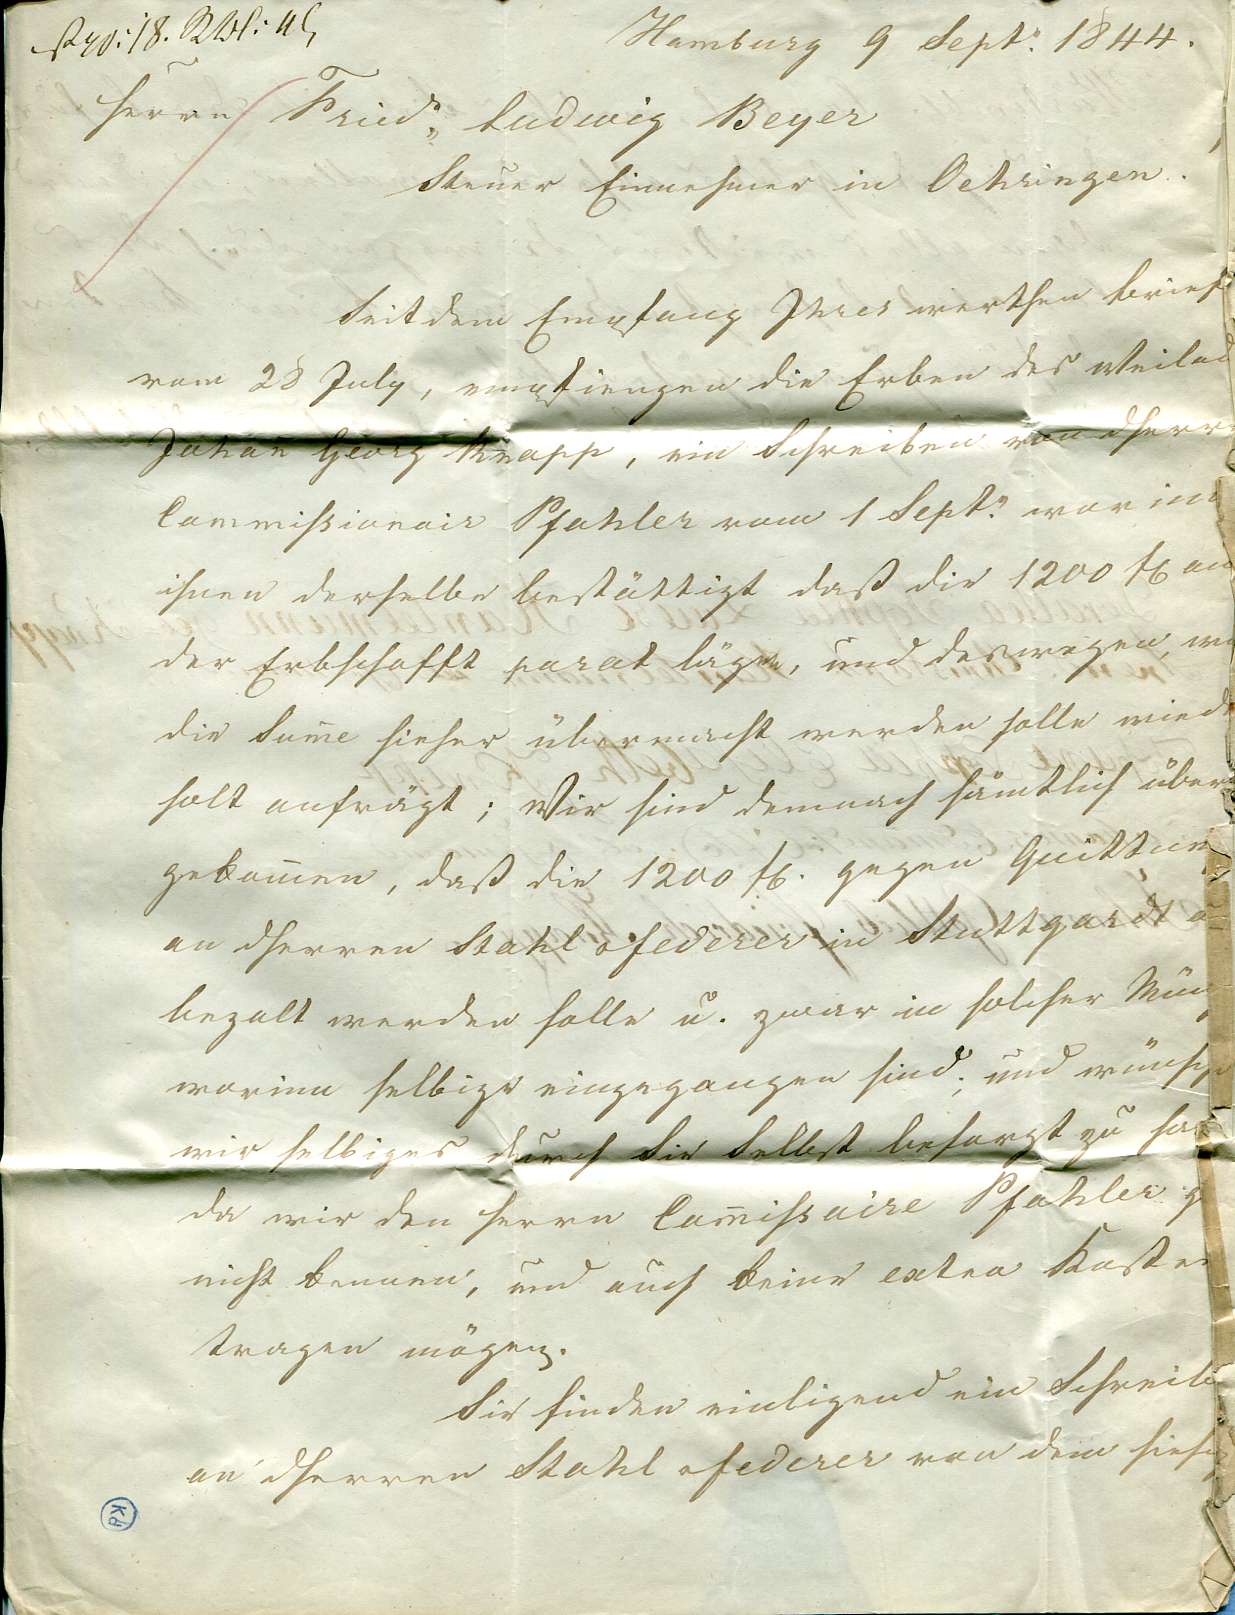 Hamburg 9 Sept: 1844.
Herrn Fried: Ludwig Beyer
Steuer Einnehmer in Oehringen.
Seit dem Empfang Ihres werthen Briefs
vom 28 July, empfiengen die Erben des Weilad
Johan̄ Georg Knapp, ein Schreiben von dHerrn
Commissionair Pfahler vom 1 Sept: worinn
ihnen derselbe bestättigt daß die 1200 f an
der Erbschafft parat lägen, und deswegen, wie
die Sum̄e hieher übermacht werden solle wieder
holt anfrägt; Wir sind demnach sämtlich über
gekom̄en, daß die 1200 f. gegen Quittung
an dHerren Stahl & Federer in Stuttgardt a
bezalt werden solle u. zwar in solcher Münz
worinn selbige eingegangen sind; und wünsche
wir selbiges durch Sie Selbst besorgt zu hab
da wir den Herrn Com̄issaire Pfahler g
nicht kennen, und auch keine extra Kosten
tragen mögen.
Sie finden einligend ein Schreib
an dHerren Stahl & Federer von dem hiesig
PK